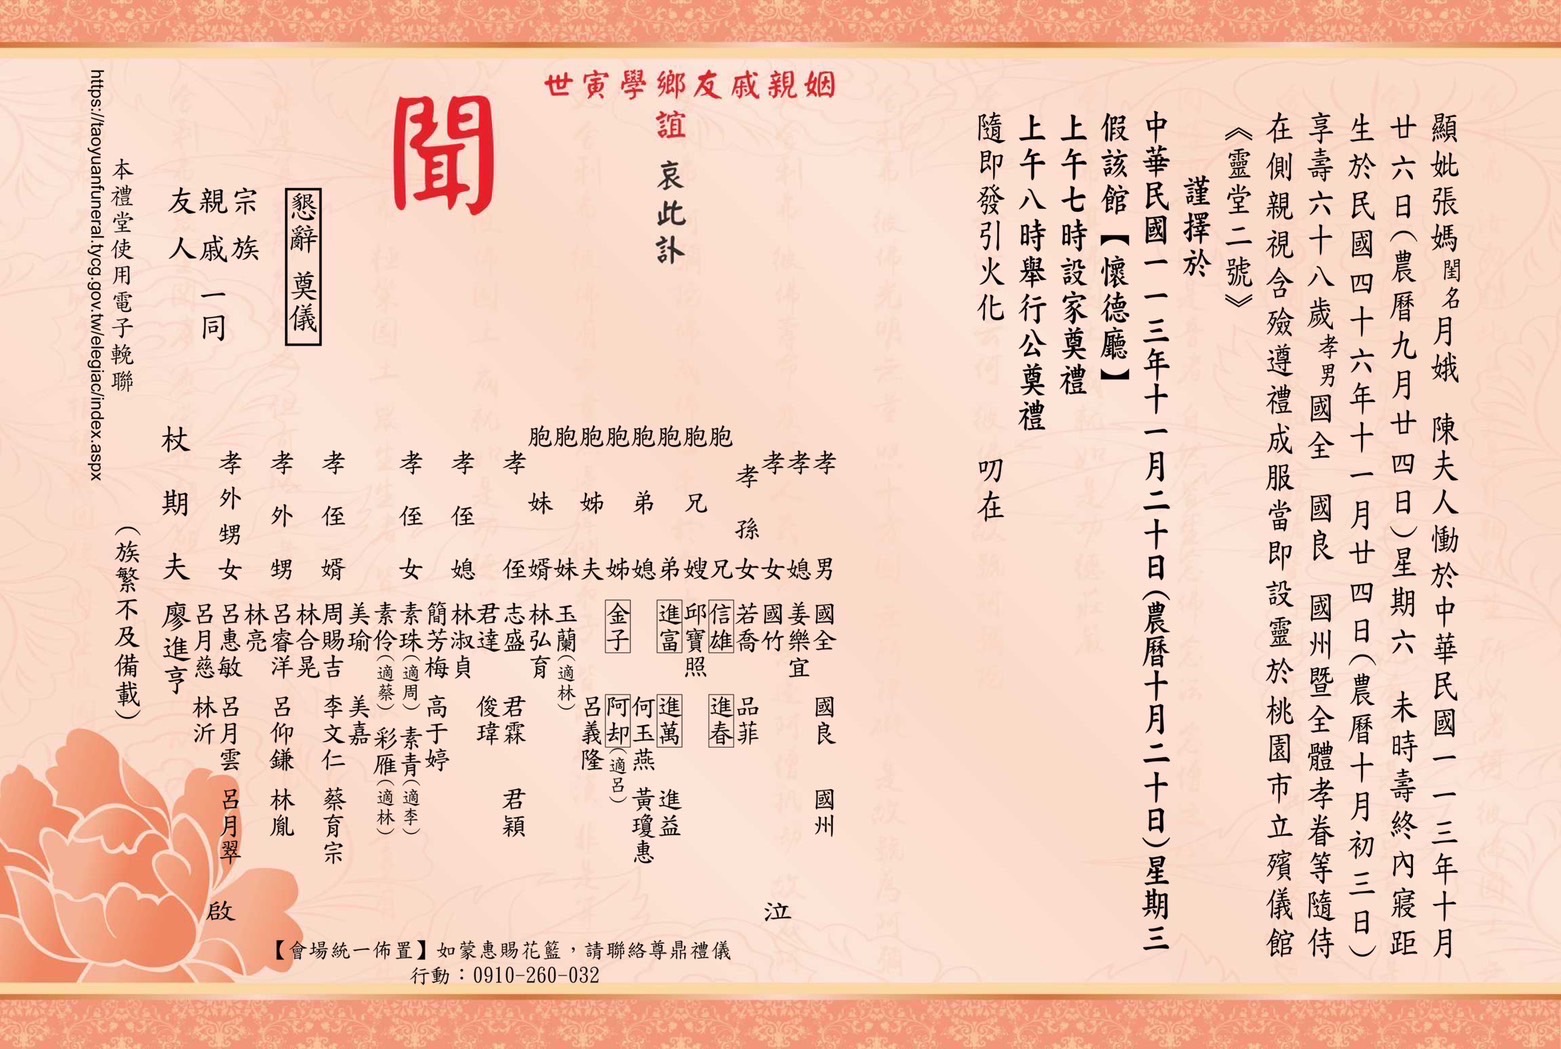 顯妣張媽閨名月娥　陳夫人慟於中華民國一一三年十月
廿六日(農曆九月廿四日)星期六　未時壽終內寢距
生於民國四十六年十一月廿四日(農曆十月初三日)
享壽六十八歲孝男國全　國良　國州暨全體孝眷等隨侍
在側親視含殮遵禮成服當即設靈於桃園市立殯儀館
《靈堂二號》
謹擇於
中華民國一一三年十一月二十日(農曆十月二十日)星期三
假該館【懷德廳】
上午七時設家奠禮
上午八時舉行公奠禮
隨即發引火化　　叨在
姻親戚友鄉學寅世
誼　哀此訃
聞
孝男　國全　國良　國州
孝媳　姜樂宜
孝女　國竹
孝孫女　若喬　品菲
胞兄　信雄　進春
胞兄嫂　邱寶照
胞弟　進富　進萬　進益
胞弟媳　何玉燕　黃瓊惠
胞姊　金子　阿却(適呂)
胞姊夫　呂義隆
胞妹　玉蘭(適林)
胞妹婿　林弘育
孝侄　志盛　君霖　君穎
君達　俊瑋
孝侄媳　林淑貞
簡芳梅　高于婷
孝侄女　素珠(適周)　素青(適李)
素伶(適蔡)　彩雁(適林)
美瑜　美嘉
孝侄婿　周賜吉　李文仁　蔡育宗
林合晃
孝外甥　呂睿洋　呂仰鎌　林胤
林亮
孝外甥女　呂惠敏　呂月雲　呂月翠
呂月慈　林沂
杖期夫　廖進亨
泣
啟
懇辭　奠儀
宗族
親戚一同
友人
(族繁不及備載)
本禮堂使用電子輓聯
https://taoyuanfuneral.tycg.gov.tw/elegiac/index.aspx
【會場統一佈置】如蒙惠賜花籃，請聯絡尊鼎禮儀
行動：0910-260-032